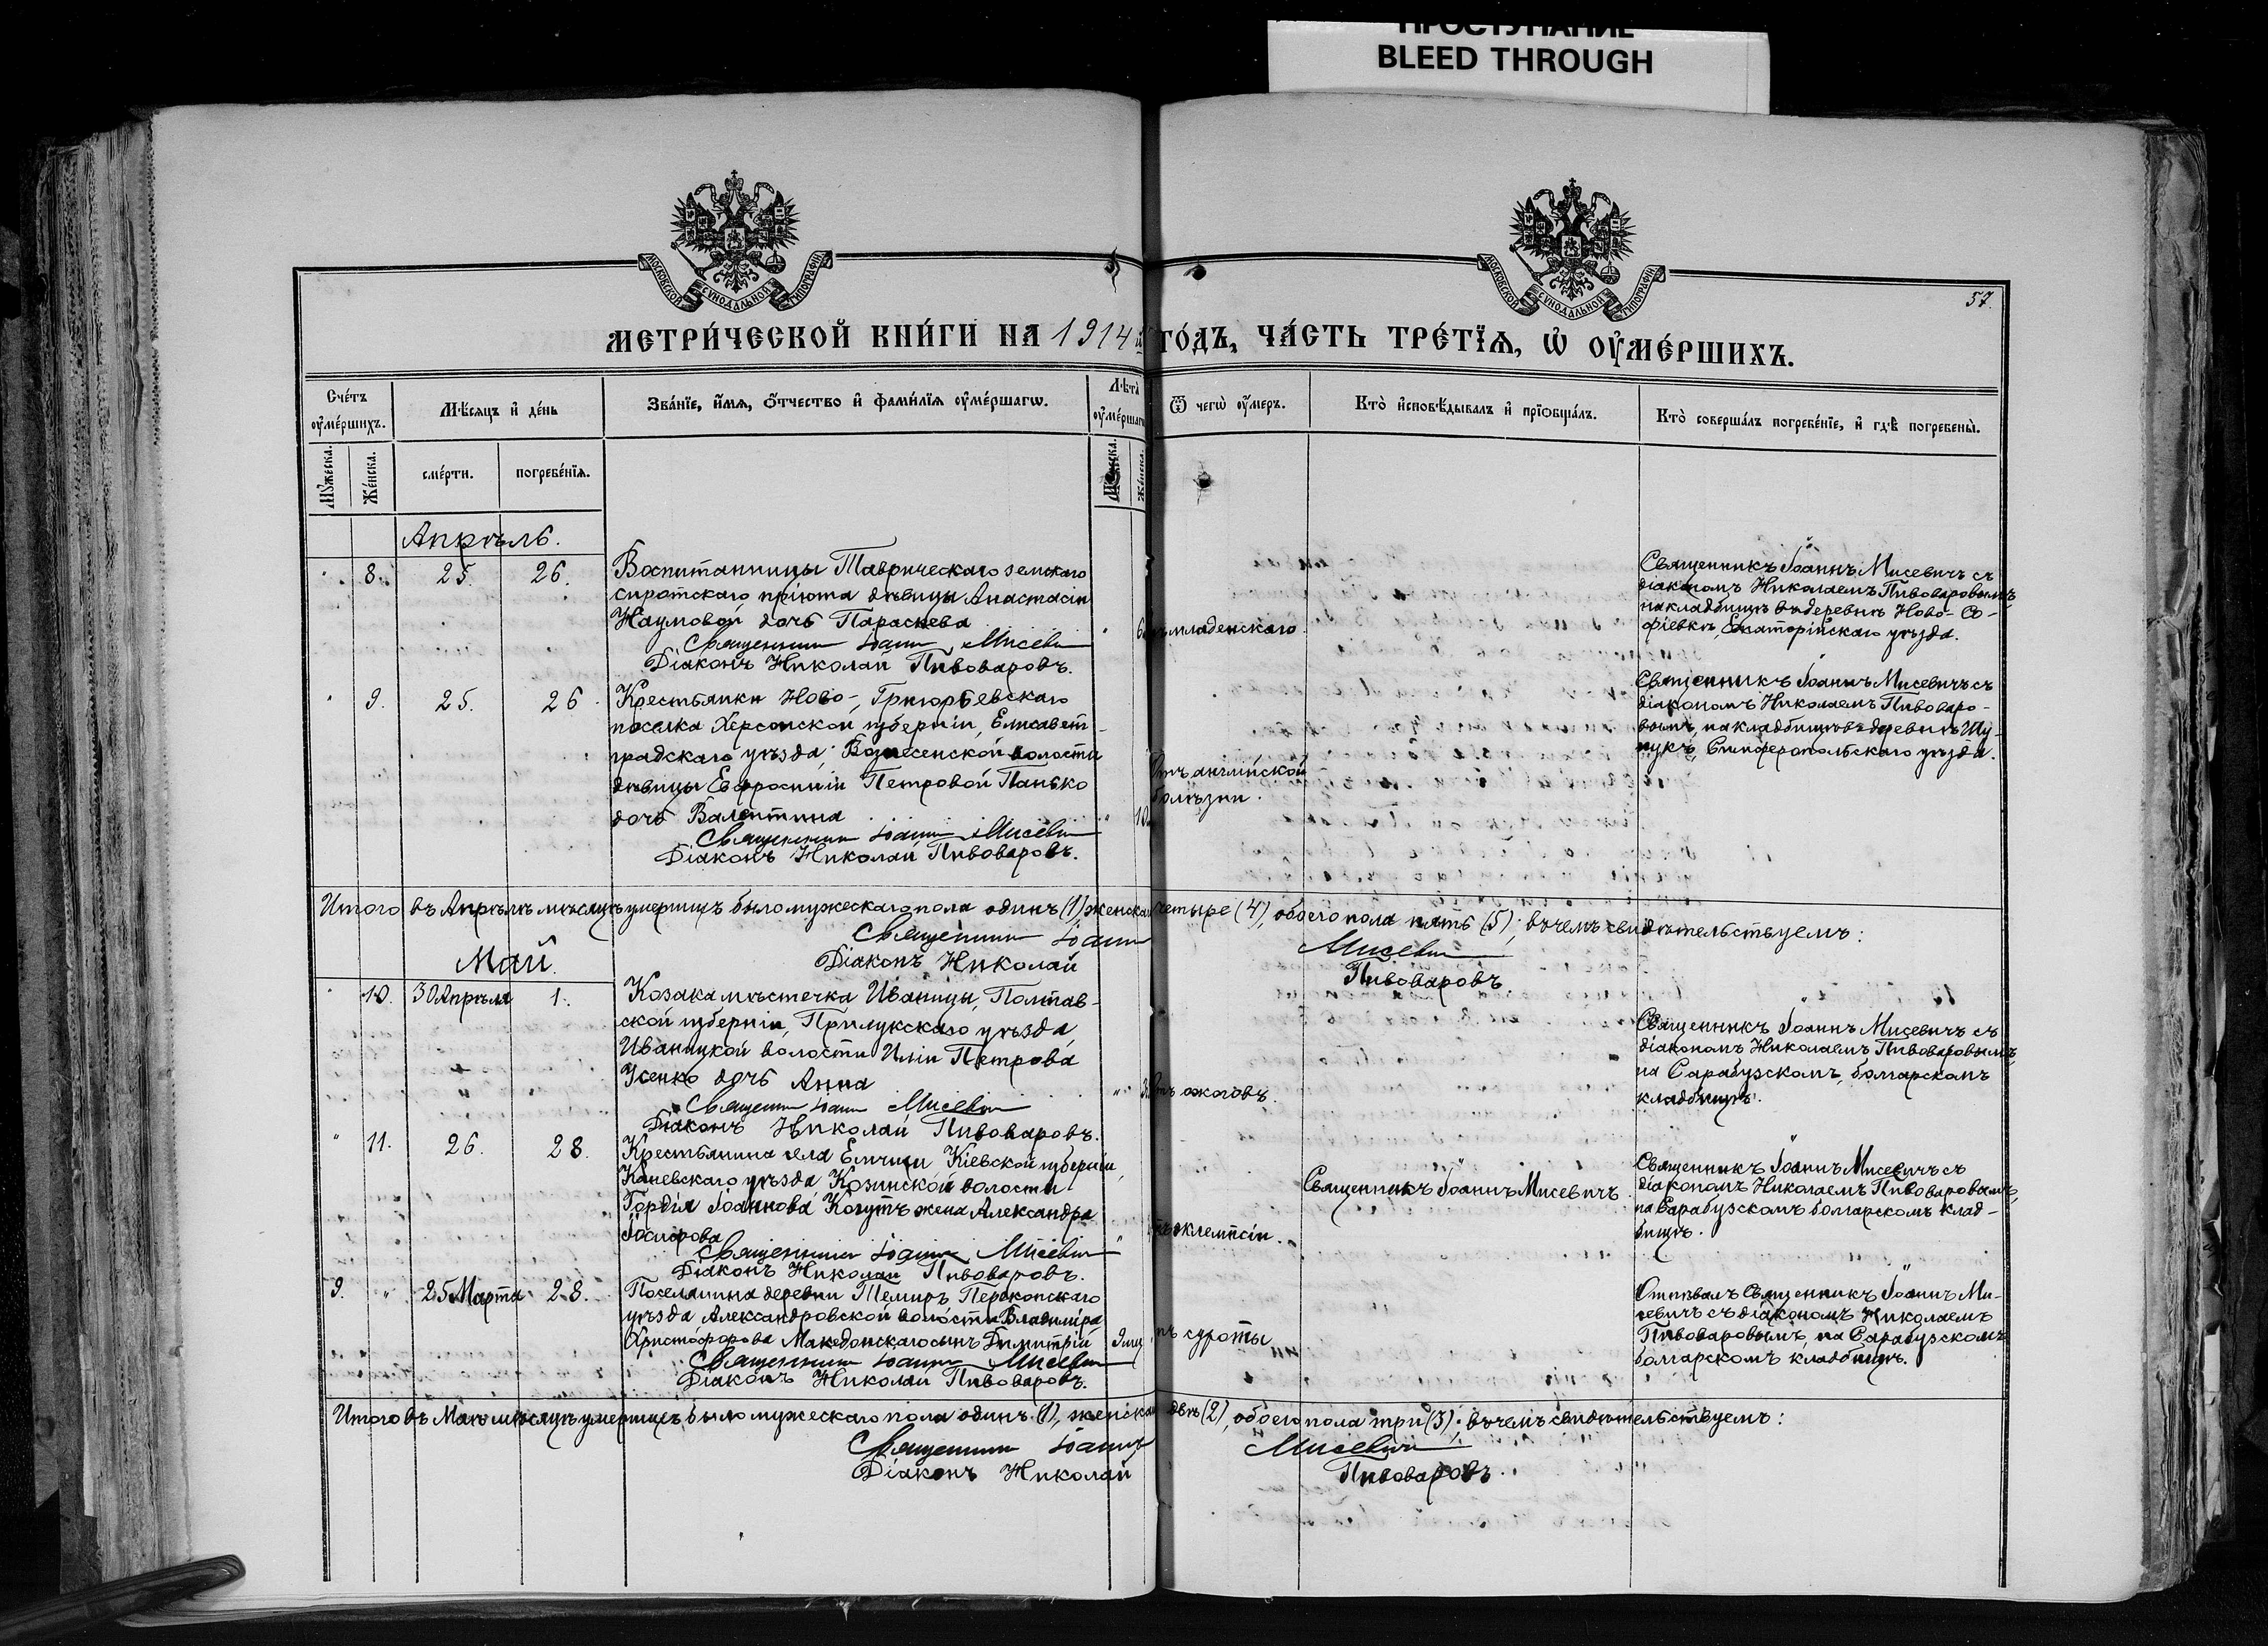 ПРОСТУПАНИЕ
BLEED THROUGH
МОСКОВСКОЙ СУНОДАЛЬНОЙ ТИПОГРАФІИ
МОСКОВСКОЙ СУНОДАЛЬНОЙ ТИПОГРАФІИ
57.
МЕТРИ́ЧЕСКОЙ КНИ́ГИ НА 1914й ГО́ДЪ, ЧА́СТЬ ТРЕ́ТЇѦ, Ѡ ОУ҆МЕ́РШИХЪ.
Сче́тъ
оу҆ме́ршихъ.
Мѣ́сяцъ и҆ де́нь
Зва́нїе, и҆́мѧ, ѻ҆́тчество и҆ фами́лїѧ оу҆ме́ршагѡ.
Лѣ́та
оу҆ме́ршагѡ
Ѿ чегѡ̀ оу҆́меръ.
Кто̀ и҆сповѣ́дывалъ и҆ прїѡбща́лъ.
Кто̀ соверша́лъ погребе́нїе, и҆ гдѣ̀ погребены̀.
Мꙋ́жеска.
Же́нска.
сме́рти.
погребе́нїѧ.
Мꙋ́жеска.
Же́нска.
Апрѣль.
" 8. 25. 26.
Воспитанницы Таврическаго земскаго
сиротскаго пріюта дѣвицы Анастасіи
Наумовой дочь Параскева
Священникъ Іоаннъ Мисевичъ
Діаконъ Николай Пивоваровъ.
младенскаго.
Священникъ Іоаннъ Мисевичъ съ
діакономъ Николаемъ Пивоваровымъ,
на кладбищѣ въ деревнѣ Ново-Со-
фіевкѣ, Евпаторійскаго уѣзда.
" 9. 25. 26.
Крестьянки Ново-Григорьевскаго
поселка Херсонской губерніи, Елисавет-
градскаго уѣзда, Вознесенской волости
дѣвицы Евфросиніи Петровой Панько
дочь Валентина
Священникъ Іоаннъ Мисевичъ
Діаконъ Николай Пивоваровъ.
Отъ англійской
болѣзни.
Священникъ Іоаннъ Мисевичъ съ
діакономъ Николаемъ Пивоваро-
вымъ, на кладбищѣ въ деревнѣ
Симферопольскаго уѣзда.
Итого въ Апрѣлѣ мѣсяцѣ умершихъ было мужескаго пола одинъ (1), женска четыре (4), обоего пола пять (5); въ чемъ свидѣтельствуемъ:
Священникъ Іоаннъ Мисевичъ
Діаконъ Николай Пивоваровъ.
Май.
" 10. 30 Апрѣля 1.
Козака мѣстечка Иваницы, Полтав-
ской губерніи, Прилукскаго уѣзда,
Иваницкой волости Иліи Петрова
Усенко дочь Анна
Священникъ Іоаннъ Мисевичъ
Діаконъ Николай Пивоваровъ.
" отъ ожоговъ.
Священникъ Іоаннъ Мисевичъ съ
діакономъ Николаемъ Пивоваровымъ,
на Сарабузскомъ, болгарскомъ
кладбищѣ.
" 11. 26. 28.
Крестьянина села Емчихи Кіевской губерніи,
Каневскаго уѣзда Козинской волости
Гордія Іоаннова Когутъ жена Александра
Священникъ Іоаннъ Мисевичъ
Діаконъ Николай Пивоваровъ.
" эклемпсіи.
Священникъ Іоаннъ Мисевичъ.
Священникъ Іоаннъ Мисевичъ съ
діакономъ Николаемъ Пивоваровымъ,
на Сарабузскомъ болгарскомъ клад-
бищѣ.
9. " 25 Марта 28.
Поселянина деревни Темиръ Перекопскаго
уѣзда Александровской волости Владиміра
Христофорова Македонскаго сынъ Димитрій
Священникъ Іоаннъ Мисевичъ
Діаконъ Николай Пивоваровъ.
9 мц.
Отпѣвалъ Священникъ Іоаннъ Ми-
севичъ съ діакономъ Николаемъ
Пивоваровымъ, на Сарабузскомъ
болгарскомъ кладбищѣ.
Итого въ Маѣ мѣсяцѣ умершихъ было мужескаго пола одинъ (1), женска двѣ (2), обоего пола три (3); въ чемъ свидѣтельствуемъ:
Священникъ Іоаннъ Мисевичъ
Діаконъ Николай Пивоваровъ.